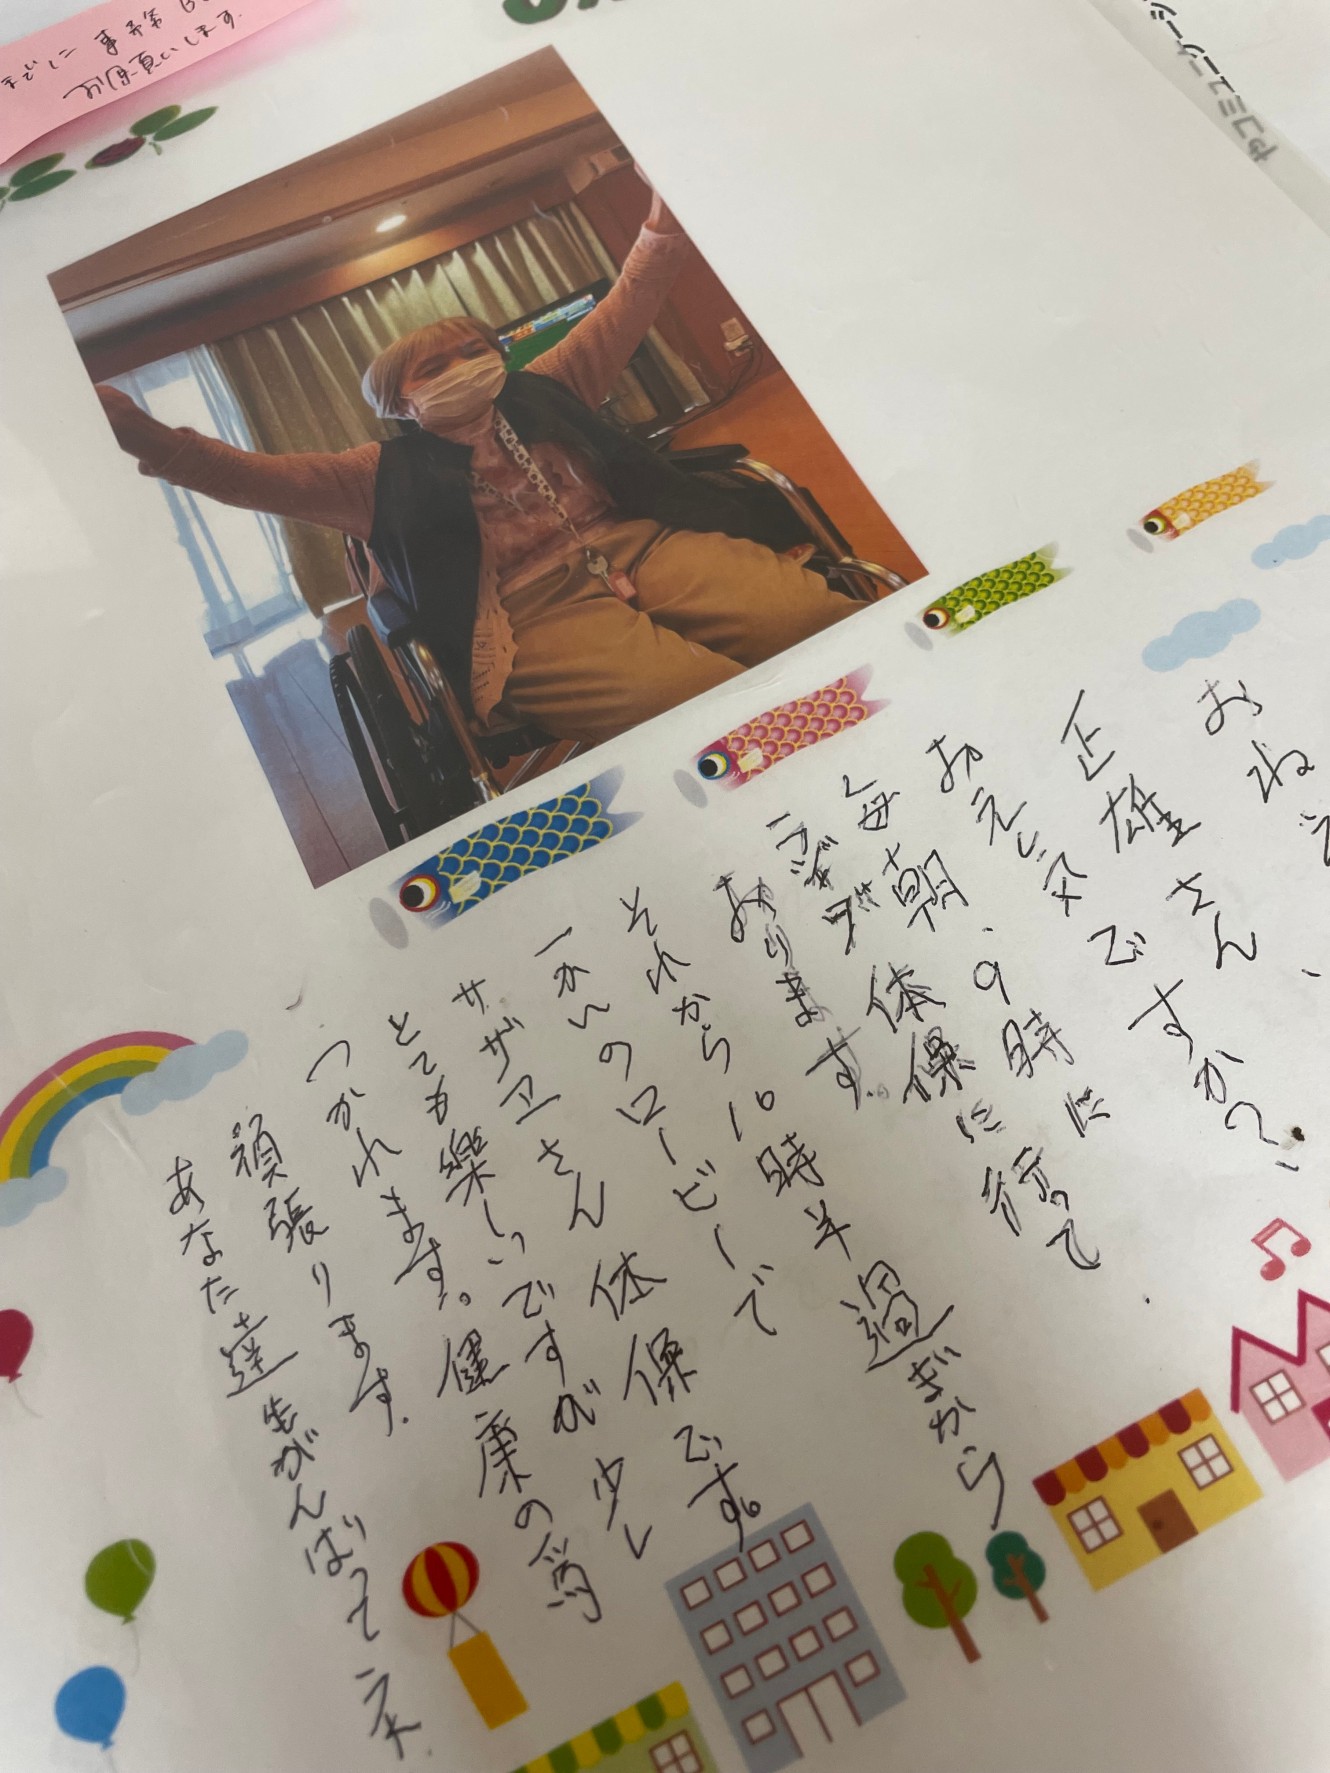 お願いします
コミュニケーシ
おねえ
正雄さん、
お元気ですか?
毎朝、9時に
ラジオ体操に行って
おります。
それから10時半過ぎから
一かいのロービーで
サザエさん体操です。
とても楽しいですが少し
つかれます。健康の為
頑張ります。
あなた達もがんばってネ